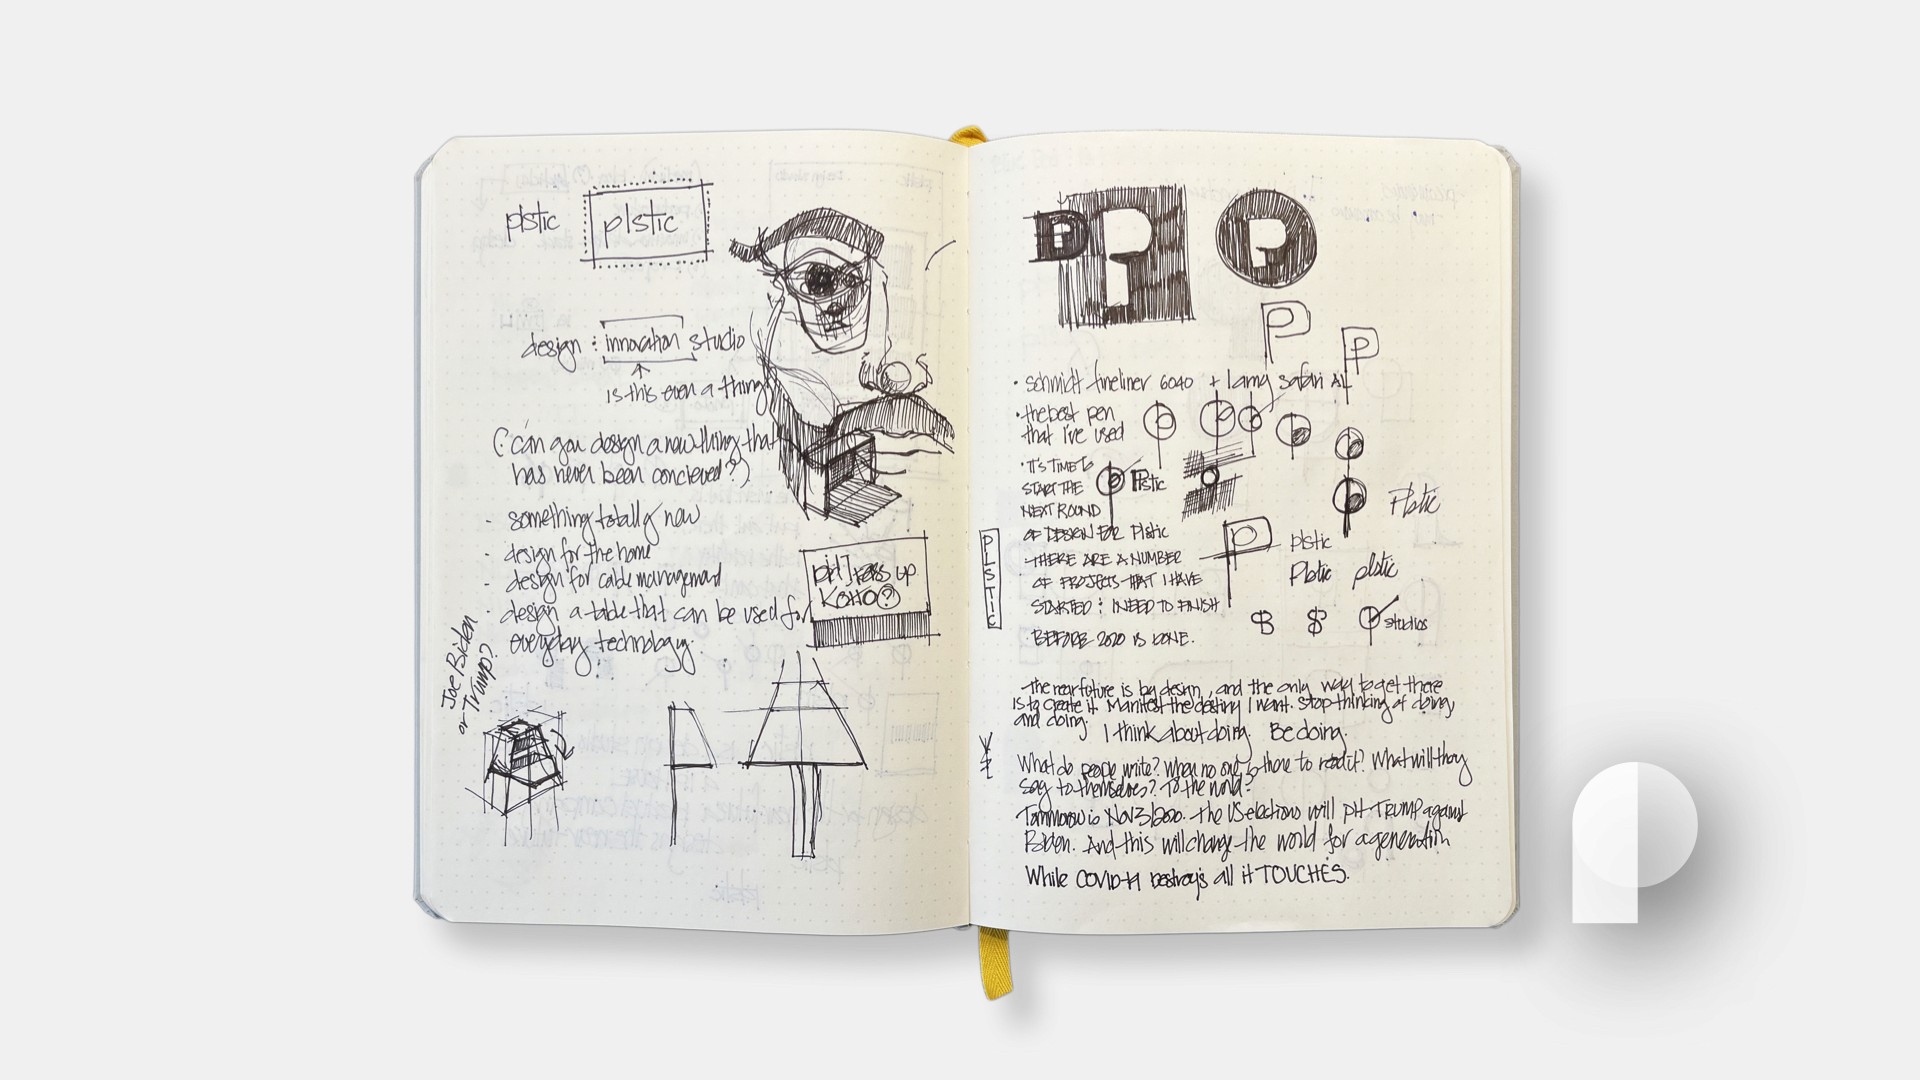 plstic
plstic
design : innovation studio
is this even a thing
(: can you design a new thing that
has never been concieved?)
· something totally new
· design for the home
· design for cable management
· design a table that can be used for
everyday technology.
Joe Biden
or Trump?
up
KOHO?
P
P
P
P
P
· schmidt fineliner 6040 + lamy safari AL
· the best pen
that I've used
· IT'S TIME to
START THE
NEXT ROUND
OF DESIGN FOR Plstic
THERE ARE A NUMBER
OF PROJECTS THAT I HAVE
STARTED : I NEED TO FINISH
BEFORE 2020 IS DONE.
Plstic
Plstic
PLSTIC
P
plstic
Plstic plstic
$
studios
the near future is by design, and the only way to get there
is to create it. Manifest the destiny I want. Stop thinking of doing,
and doing.
I think about doing. Be doing.
What do people write? When no one is there to read it? What will they
say to themselves? To the world?
Tommorow is Nov 3/2020. The US elections will pit TRUMP against
Biden. And this will change the world for a generation
While COVID-19 destroys all it TOUCHES.